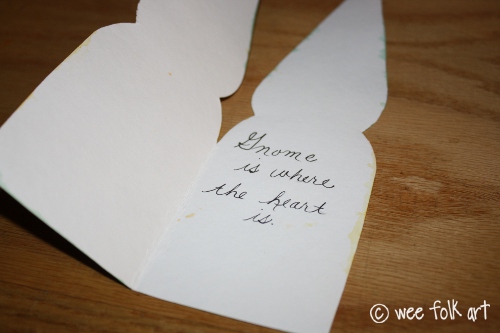 Gnome
is where
the heart
is.
© wee folk art